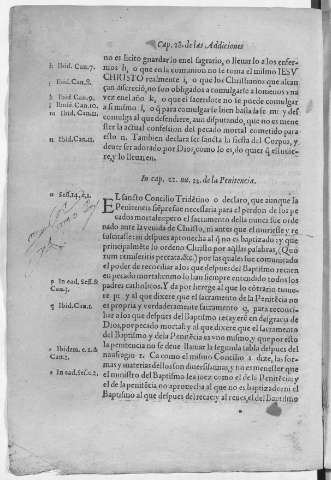 Cap. 28. de las Addiciones
h Ibid. Can. 7.
i Ibid. Can. 8.
k Ibid. Can. 9.
l Ibidē. Can. 10.
m Ibid. Can. 11.
n Ibid. Can. 6.
no es licito guardar lo en el sagrario, o lleuar lo a los enfer-
mos h, o que en la comunion no le toma el mismo IESV
CHRISTO realmente i, o que los Christianos que alcan
çan discreció, no son obligados a comulgarse a lo menos vna
vez en el año k, o que el sacerdote no se puede comulgar
a si mismo l, o q̃ para comulgarse basta la fe m: y des
comulga al que defendiere, aun disputando, que no es mene
ster la actual confession del pecado mortal cometido para
esto n. Tambien declara ser sancta la fiesta del Corpus, y
deue ser adorado por Dios, como lo es, do quier q̃ estuuie
re, y lo lleuen.
In cap. 22. nu. 23. de la Penitencia.
o Sess. 14. c. 1.
p In ead. Sess. &
Can. 1.
q Ibid. Can. 2.
r Ibidem. c. 2. &
Can. 2.
s In ead. Ses. c. 2.
EL sancto Concilio Tridētino o declaro, que aunque la
Penitencia sēpre fue necessaria para el perdon de los pe
cados mortales: pero el sacramento della nunca fue orde
nado ante la venida de Christo, ni antes que el muriesse y re
suscitasse: ni despues aprouecha al q̃ no es baptizado: y que
principalmēte lo ordeno Christo por aq̃llas palabras, (Quo
rum remiseritis peccata. &c.) por las quales fue comunicado
el poder de reconciliar a los que despues del Baptismo recaen
en pecado mortal: como lo han siempre entendido todos los
padres catholicos. Y da por herege al que lo cōtrario tuuie-
re p: y al que dixere que el sacramento de la Penitēcia no
es propria y verdaderamente sacramento q, para reconci-
liar a los que despues del Baptismo recayerē en desgracia de
Dios, por pecado mortal: y al que dixere que el sacramento
del Baptismo y dela Penitēcia es vno mismo, y que por esto
la penitencia no se deue llamar la segunda tabla despues del
naufragio r. Ca como el mismo Concilio s dize, las for-
mas y materias dellos son diuersissimas, y no es menester que
el ministro del Baptismo sea juez como el de la Penitēcia: y el
de la penitēcia no aprouecha al que no es baptizado: ni el
Baptismo al que despues del recae: y al reues, el del Baptismo